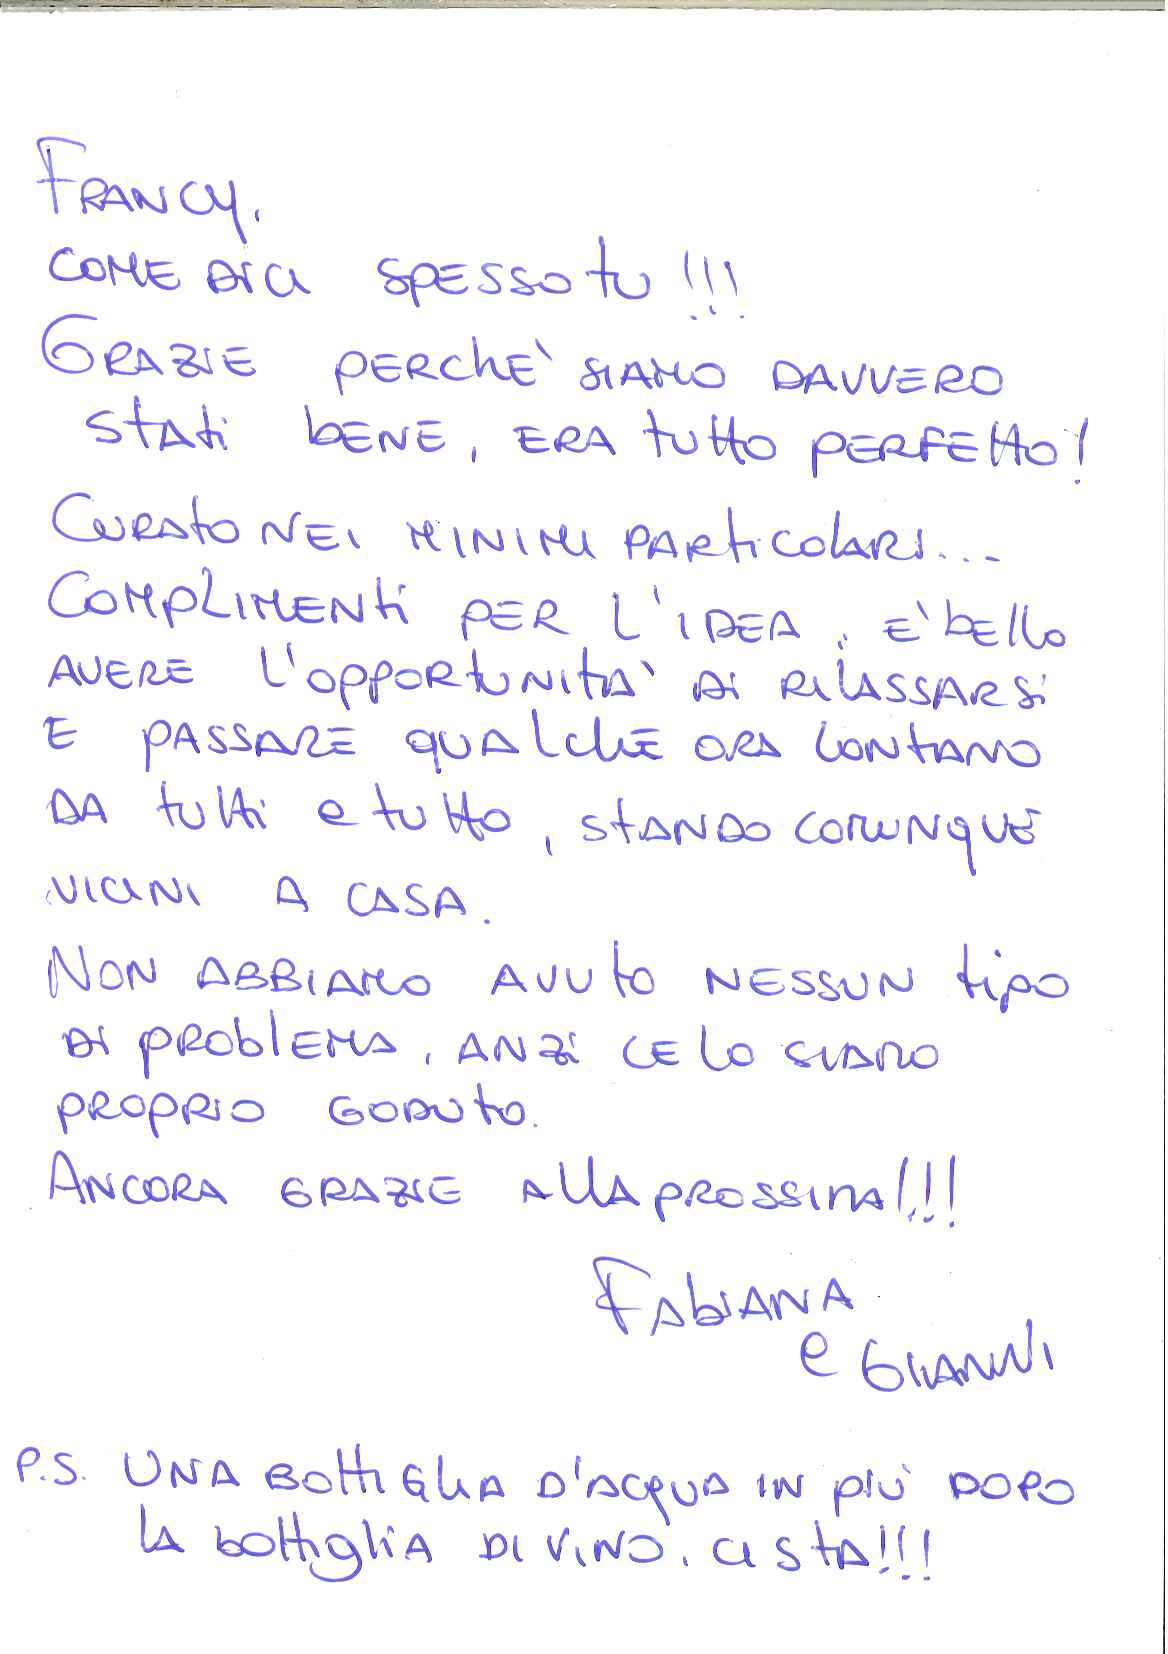 FRANCY,
COME DICI SPESSO TU!!!
GRAZIE PERCHE' SIAMO DAVVERO
STATI BENE, ERA TUTTO PERFETTO!
CURATO NEI MINIMI PARTICOLARI...
COMPLIMENTI PER L'IDEA, E' BELLO
AVERE L'OPPORTUNITA' DI RILASSARSI
E PASSARE QUALCHE ORA LONTANO
DA TUTTI E TUTTO, STANDO COMUNQUE
VICINI A CASA.
NON ABBIAMO AVUTO NESSUN TIPO
DI PROBLEMA, ANZI CE LO SIAMO
PROPRIO GODUTO.
ANCORA GRAZIE ALLA PROSSIMA!!!
FABIANA
E GIANNI
P.S. UNA BOTTIGLIA D'ACQUA IN PIU' DOPO
LA BOTTIGLIA DI VINO, CI STA!!!